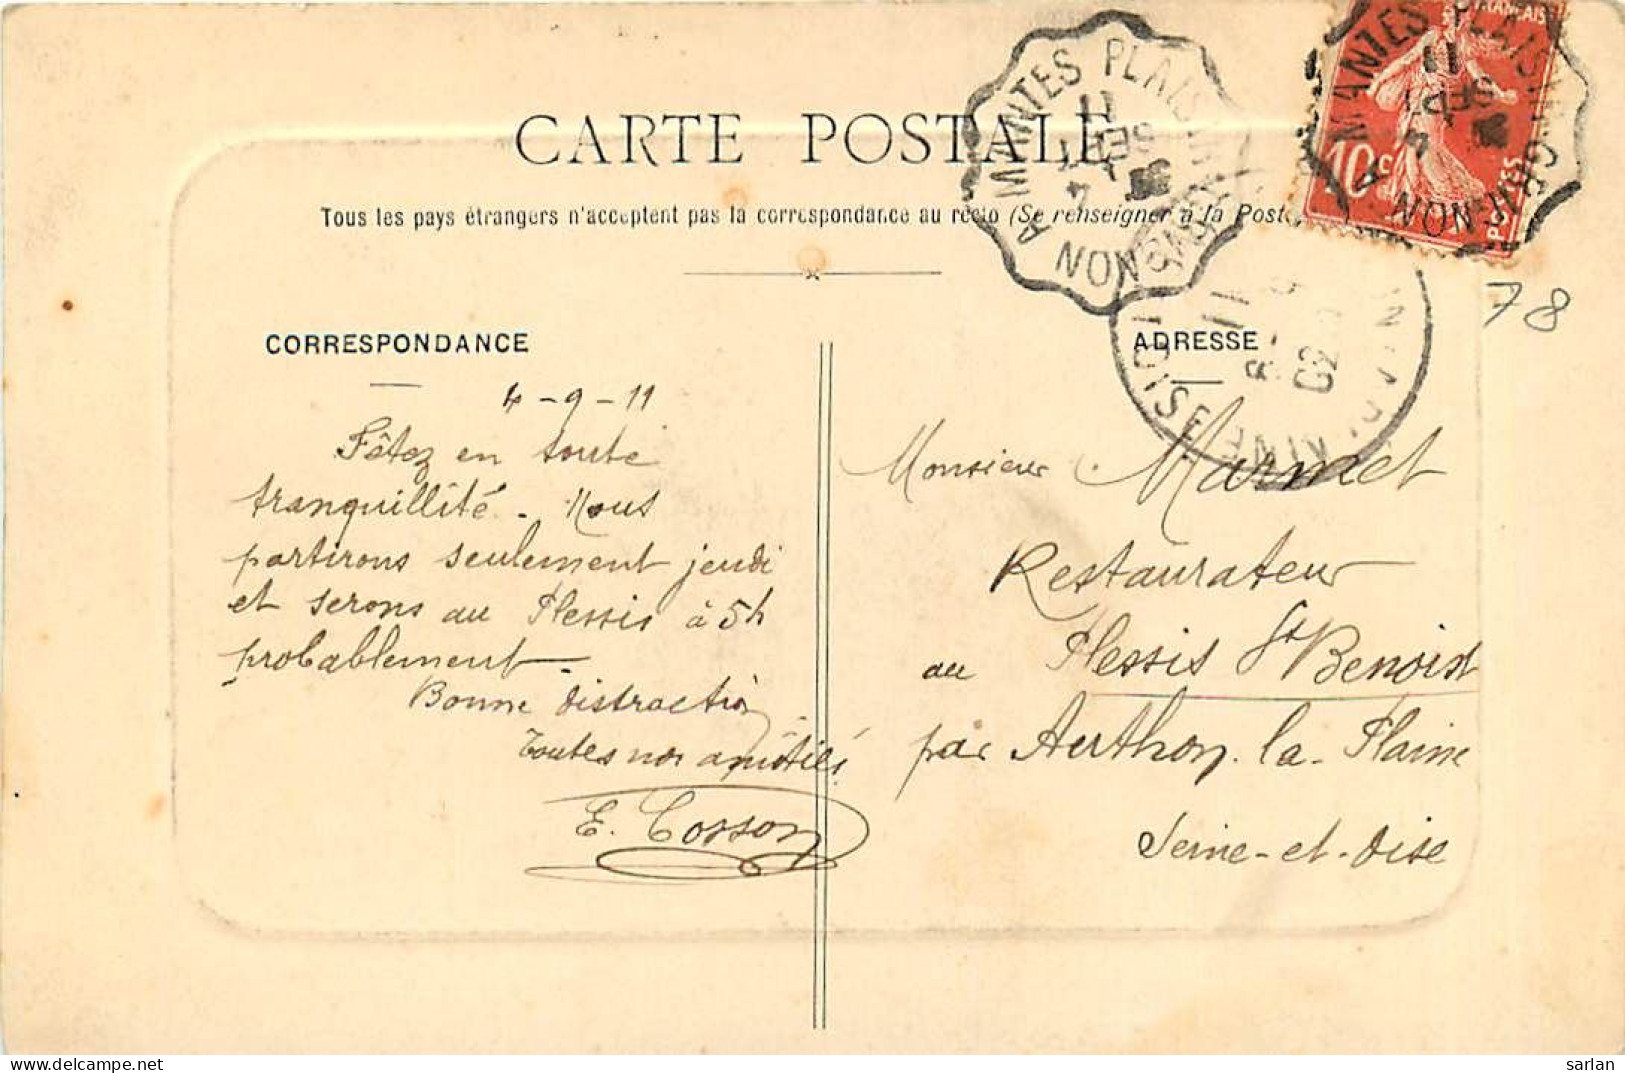 CARTE POSTALE
Tous les pays étrangers n'acceptent pas la correspondance au recto (Se renseigner à la Poste
CORRESPONDANCE
4-9-11
Fêtez en toute
tranquillité. Nous
partirons seulement jeudi
et serons au Plessis à 5h
probablement.
Bonne distraction
Toutes nos amitiés
E. Cosson
ADRESSE
Monsieur Marmet
Restaurateur
au Plessis St Benoist
par Authon-la-Plaine
Seine-et-Oise
A MANTES PLAIS
4 SEPT 11
10c
POSTES
78
sarlan